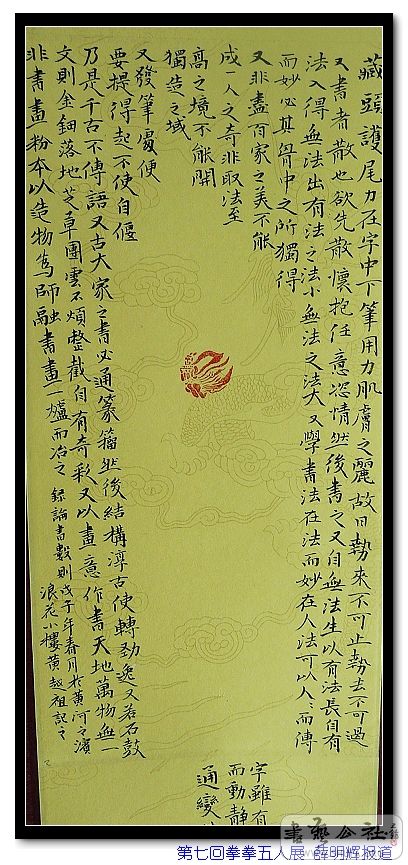 藏頭護尾力在字中下筆用力肌膚之麗故曰勢來不可止勢去不可遏
又書者散也欲先散懷抱任意恣情然後書之又自無法生以有法長自有
法入得無法出有法之法小無法之法大又學書法在法而妙在人法可以人人而傳
而妙必其胷中之所獨得
又非盡百家之美不能
成一人之奇非取法至
高之境不能開
獨造之域
又發筆處便
要提得起不使自偃
乃是千古不傳語又古大家之書必通篆籀然後結構淳古使轉勁逸又若石鼓
文則金鈿落地芝草團雲不煩整截自有奇彩又以畫意作書天地萬物無一
非書畫粉本以造物為師融書畫一爐而冶之 錄論書數則戊子年春月於黃河之濱
浪花小樓黃越祖記之
字雖有
而動靜
通變
書藝公社
第七回拳拳五人展 薛明辉报道